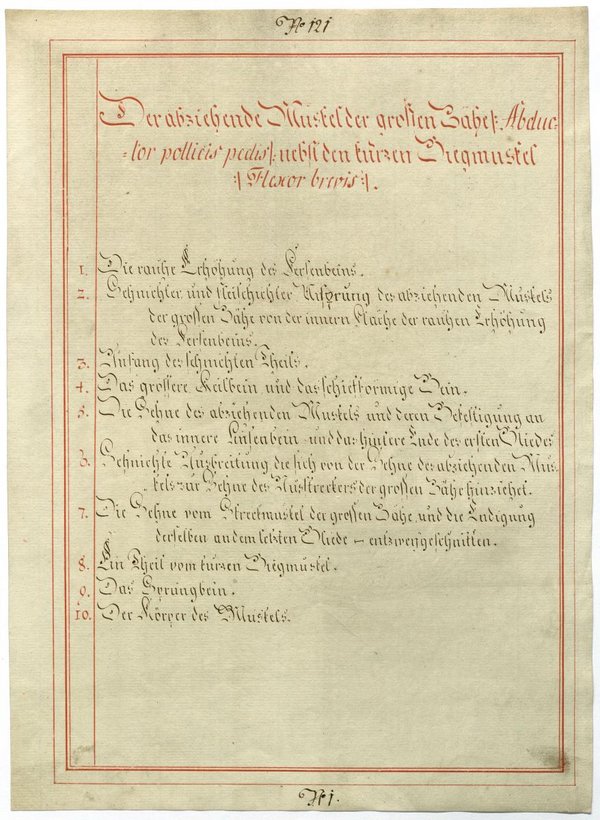 No 121
Der abziehende Muskel der großen Zähe /: Abduc-
-tor pollicis pedis :/ nebst den kurzen Biegmuskel
:/ Flexor brevis :/.
1. Die rauhe Erhöhung des Fersenbeins.
2. Sehnichter und fleischichter Ursprung des abziehenden Muskels
der großen Zähe von der innern Fläche der rauhen Erhöhung
des Fersenbeins.
3. Anfang des sehnichten Theils.
4. Das grössere Keilbein und das schiefförmige Bein.
5. Die Sehne des abziehenden Muskels und deren Befestigung an
das innere Linsenbein und das hintere Ende des ersten Gliedes
6. Sehnichte Ausbreitung die sich von der Sehne des abziehenden Mus-
kels zur Sehne des Ausstreckers der großen Zähe hinziehet.
7. Die Sehne vom Streckmuskel der großen Zähe, und die Endigung
derselben an dem letzten Gliede – entzweygeschnitten.
8. Ein Theil vom kurzen Biegmuskel.
9. Das Sprungbein.
10. Der Körper des Muskels.
No 1.